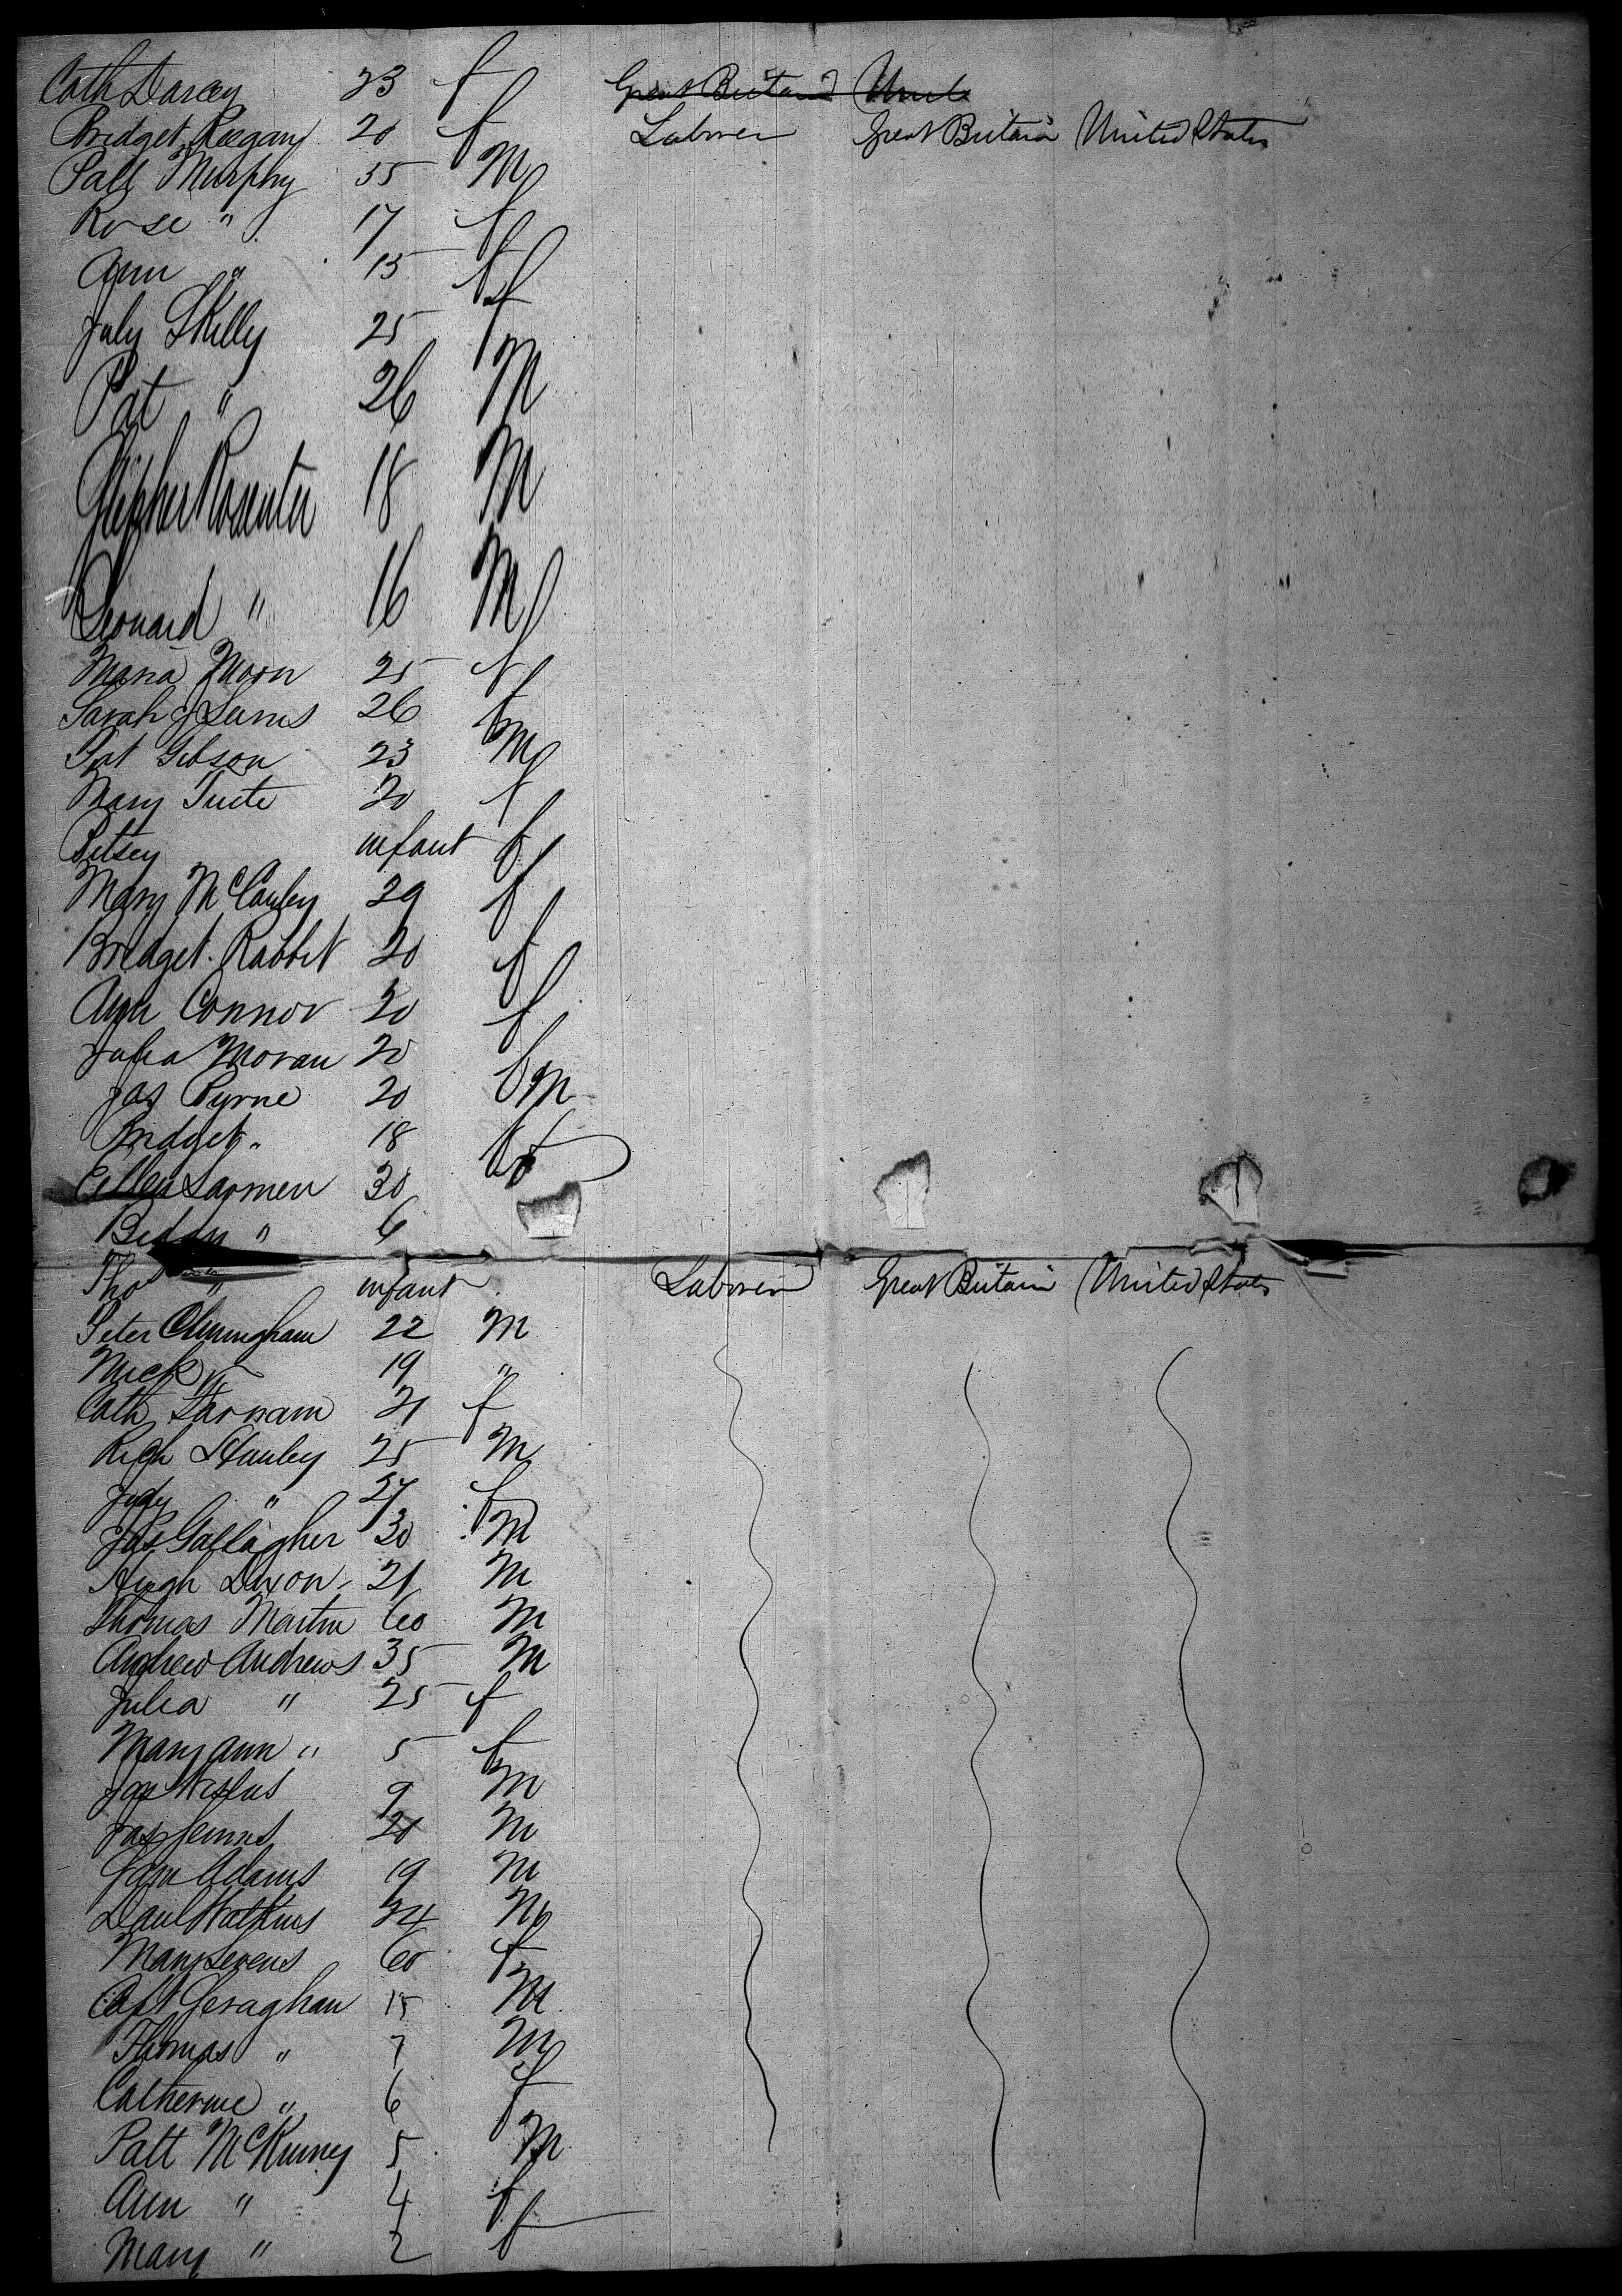 Cath Darcey 23 f Great Britain Unite
Bridget Keegan 20 f Laborer Great Britain United States
Patt Murphy 35 M
Rose " 17 f
Ann " 15 f
July Skelly 25 f
Pat " 26 M
18 M
Leonard " 16 M
Maria Moon 25 f
Sarah J 26 f
Pat Gibson 23 M
Mary Tuite 20 f
Betsey infant f
Mary McCauley 29 f
Bridget Rabbit 20 f
Ann Connor 20 f
Julia Moran 20 f
Jas Byrne 20 M
Bridget " 18 f
Ellen Larmen 30 f
Biddy " 6
Thos " infant Laborer Great Britain United States
Peter Cunningham 22 M
Mick " 19 "
Cath Farnam 21 f
Rich Stanley 25 M
Judy " 27 f
Jas Gallagher 30 M
Hugh Dixon 21 M
Thomas Martin 60 M
Andrew Andrews 35 M
Julia " 25 f
Mary Ann " 5 f
Jas 9 M
Jas 20 M
Sam Adams 19 M
Danl Watkins 24 M
Mary 60 f
Geraghan 15 M
Thomas " 7 M
Catherine " 6 f
Patt McKinney 5 M
Ann " 4 f
Mary " 2 f